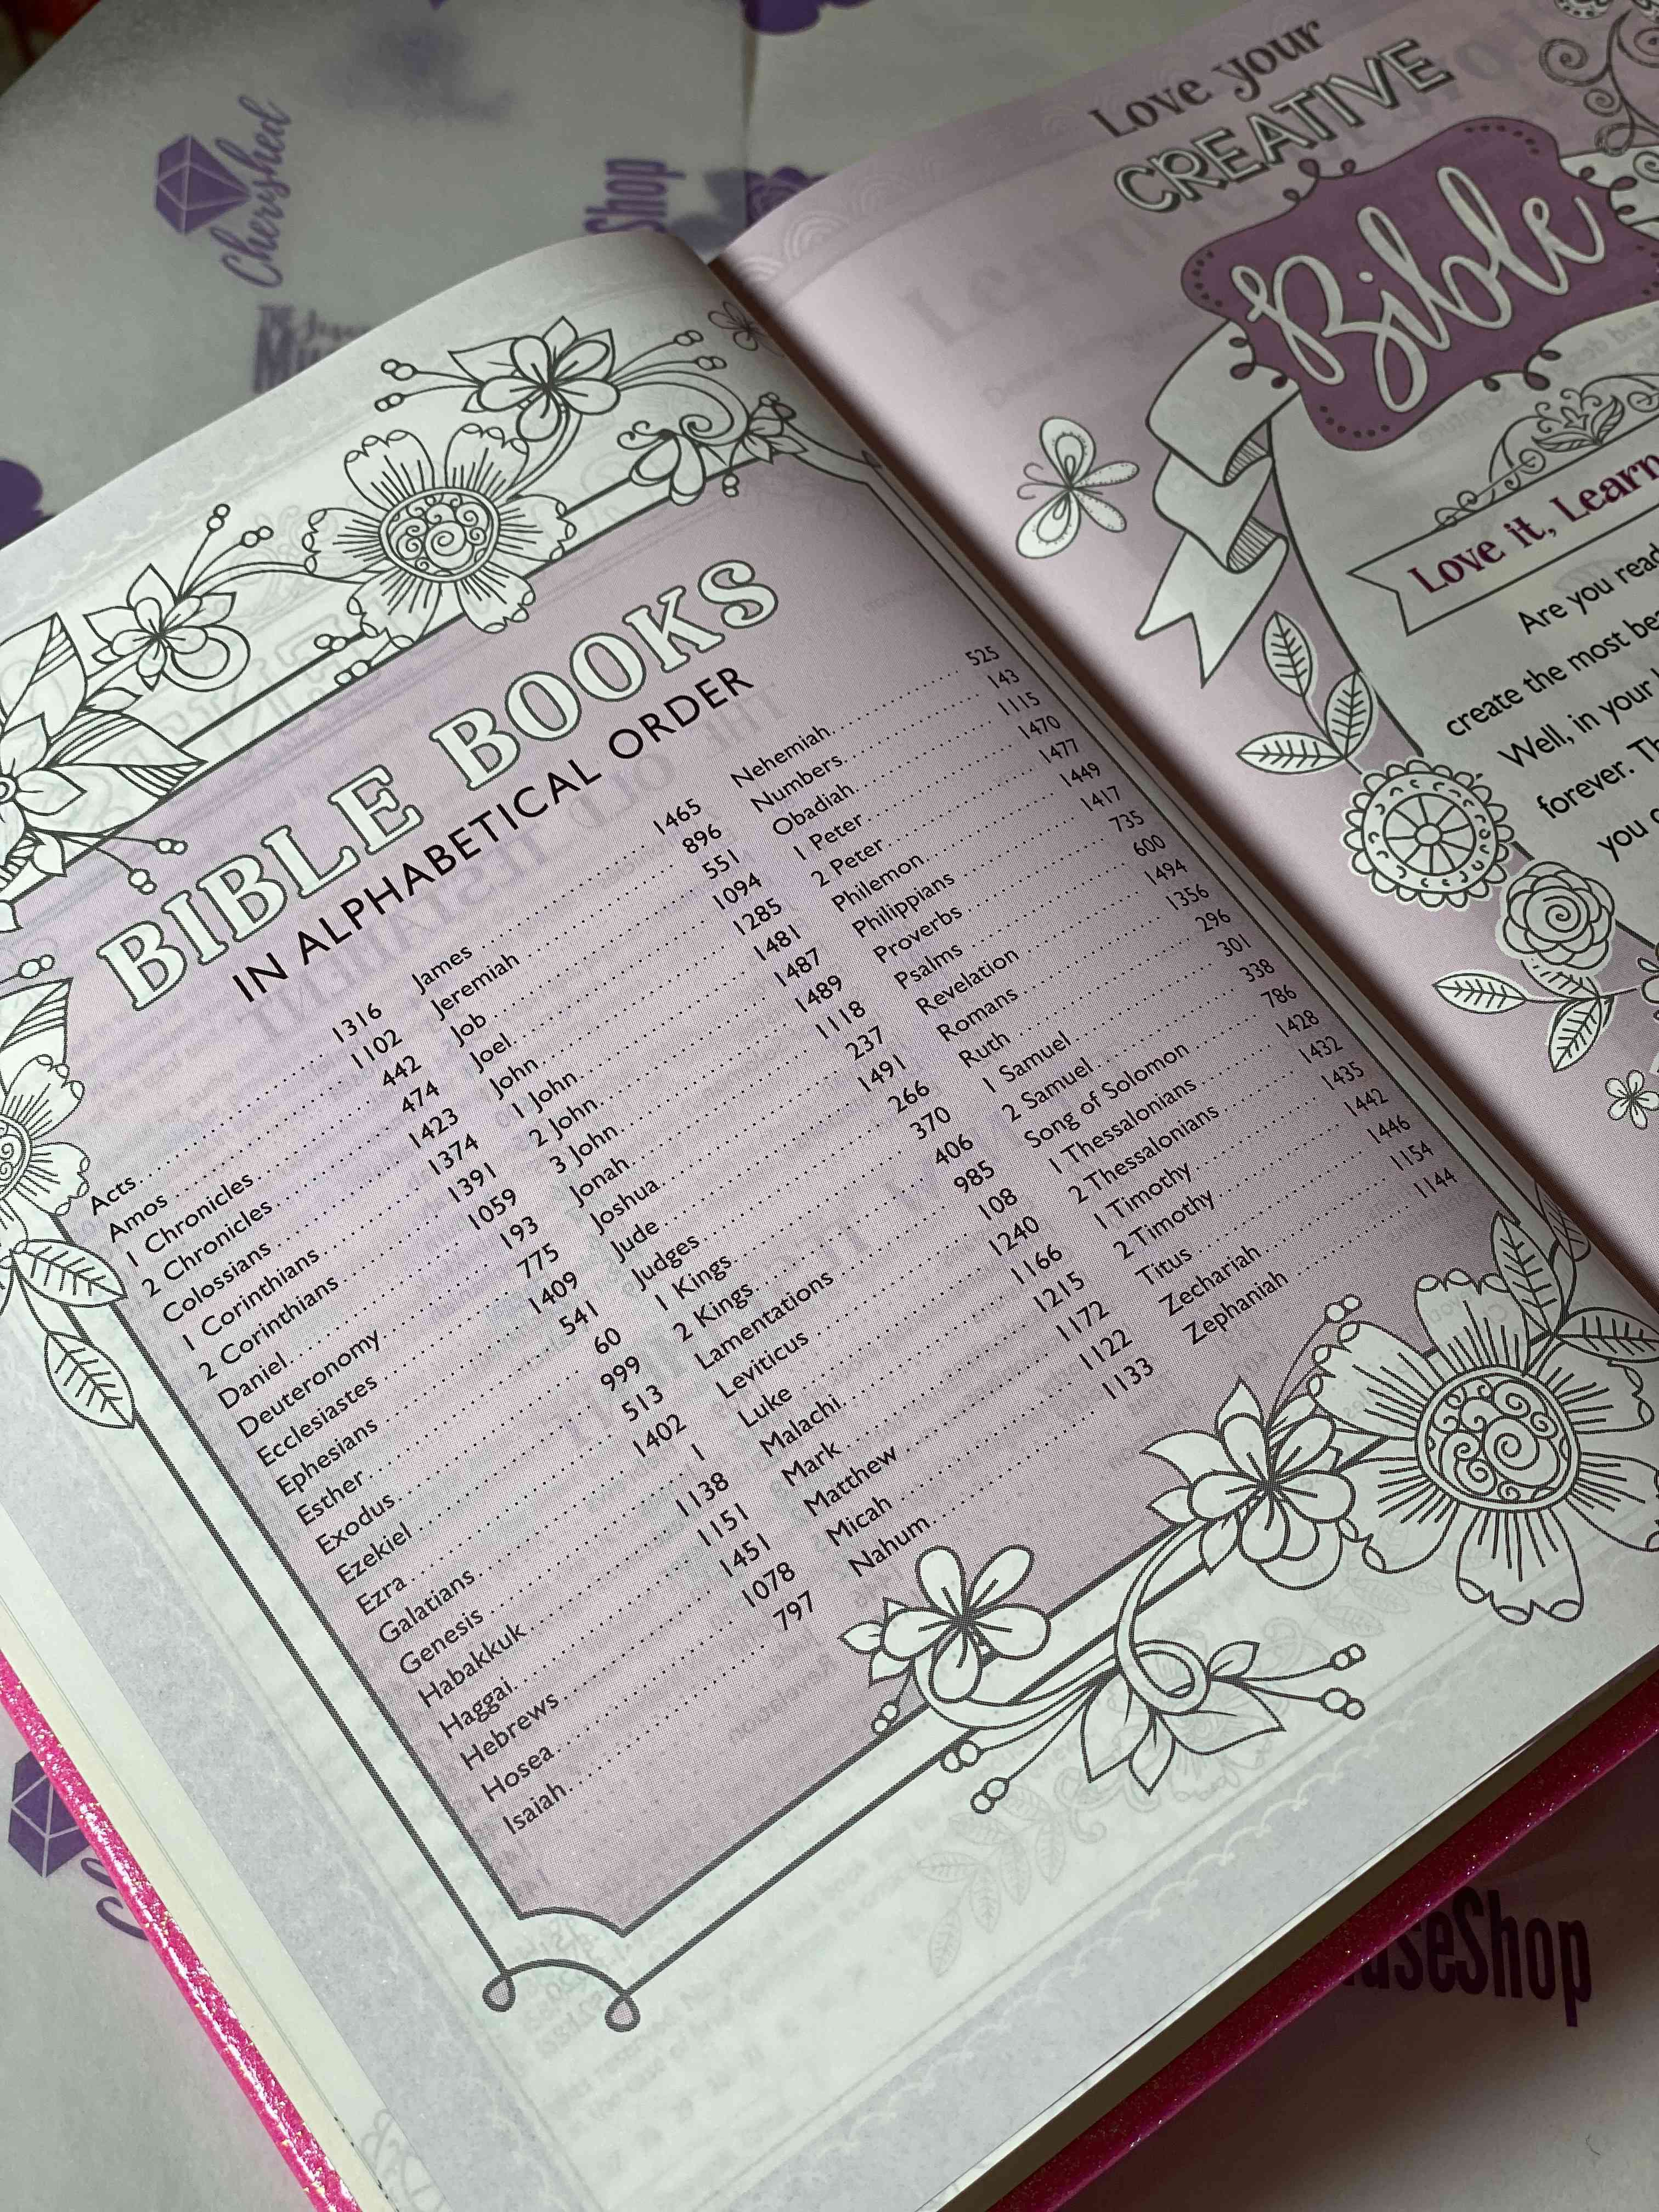 Cherished
Shop
Love your
CREATIVE
Bible
Love it, Learn
Are you
create the most
Well, in your
forever.
you
BIBLE BOOKS
IN ALPHABETICAL ORDER
Acts 1316
Amos 1102
1 Chronicles 442
2 Chronicles 474
Colossians 1423
1 Corinthians 1374
2 Corinthians 1391
Daniel 1059
Deuteronomy 193
Ecclesiastes 775
Ephesians 1409
Esther 541
Exodus 60
Ezekiel 999
Ezra 513
Galatians 1402
Genesis 1
Habakkuk 1138
Haggai 1151
Hebrews 1451
Hosea 1078
Isaiah 797
James 1465
Jeremiah 896
Job 551
Joel 1094
John 1285
1 John 1481
2 John 1487
3 John 1489
Jonah 1118
Joshua 237
Jude 1491
Judges 266
1 Kings 370
2 Kings 406
Lamentations 985
Leviticus 108
Luke 1240
Malachi 1166
Mark 1215
Matthew 1172
Micah 1122
Nahum 1133
Nehemiah 525
Numbers 143
Obadiah 1115
1 Peter 1470
2 Peter 1477
Philemon 1449
Philippians 1417
Proverbs 735
Psalms 600
Revelation 1494
Romans 1356
Ruth 296
1 Samuel 301
2 Samuel 338
Song of Solomon 786
1 Thessalonians 1428
2 Thessalonians 1432
1 Timothy 1435
2 Timothy 1442
Titus 1446
Zechariah 1154
Zephaniah 1144
Shop